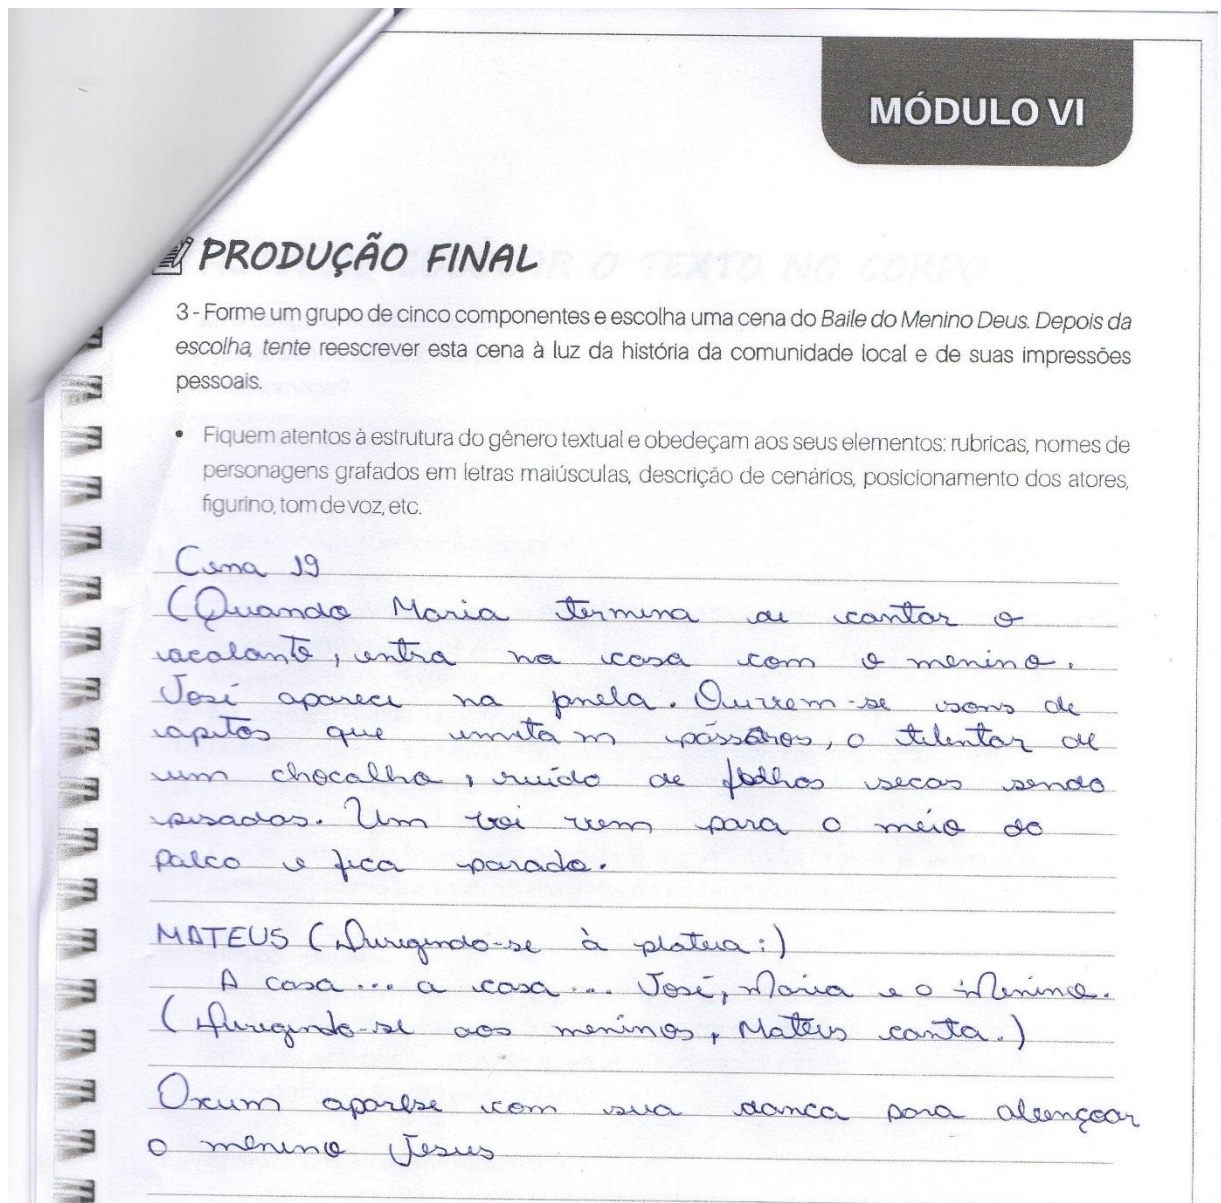 MÓDULO VI
PRODUÇÃO FINAL
3 - Forme um grupo de cinco componentes e escolha uma cena do Baile do Menino Deus. Depois da
escolha, tente reescrever esta cena à luz da história da comunidade local e de suas impressões
pessoais.
• Fiquem atentos à estrutura do gênero textual e obedeçam aos seus elementos: rubricas, nomes de
personagens grafados em letras maiúsculas, descrição de cenários, posicionamento dos atores,
figurino, tom de voz, etc.
Cena 19
(Quando Maria termina de cantar o
acalanto, entra na casa com o menino.
José aparece na janela. Ouvem-se sons de
apitos que imitam pássaros, o tilentar de
um chocalho, ruído de folhas secas sendo
pisadas. Um boi vem para o meio do
palco e fica parado.
MATEUS (Dirigindo-se à plateia:)
A casa... a casa... José, Maria e o Menino.
(Dirigindo-se aos meninos, Mateus canta.)
Oxum aparese com sua danca para abençoar
o menino Jesus